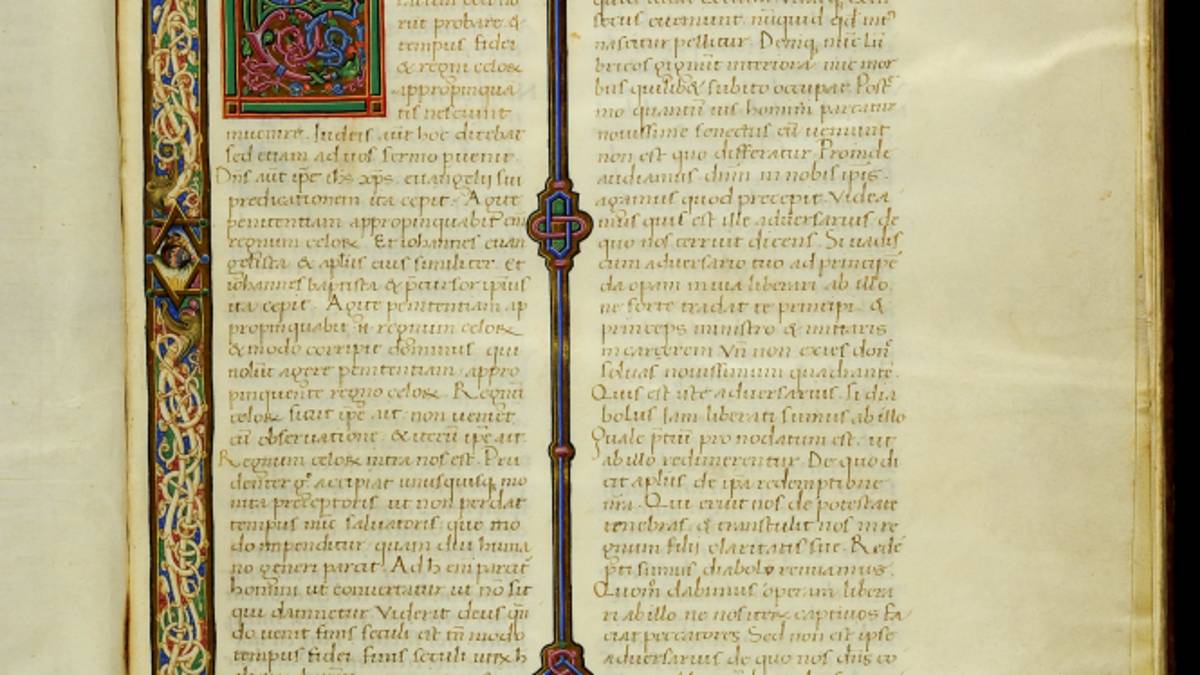 rint probare &
tempus fidei
& regni celoꝝ
appropinqua
tis nesciunt
inuenire. Iudeis aut hoc dicebat
sed etiam ad uos sermo puenit.
Dns aut ipe ihs xps. euangelii sui
predicationem ita cepit. Agite
penitentiam appropinquabit em
regnum celoꝝ Et iohannes euan
gelista & aplus eius similiter. Et
iohannes baptista & pcursor ipsius
ita cepit. Agite penitentiam ap
propinquabit n regnum celoꝝ
& modo corripit dominus qui
nolut agere penitentiam appro
pinquente regno celoꝝ. Regnu
celoꝝ sicut ipe ait non ueniet
cu obseruatione. & iteru ipe ait.
Regnum celoꝝ intra nos est. Pru
denter g accipiat unusquisq mo
nita preceptoris ut non perdat
tempus mie saluatoris que mo
do impenditur quam diu huma
no generi parcit. Ad h eni parcit
homini ut conuertatur ut no sit
qui damnetur Viderit deus qn
do uenit finis seculi est tn modo
tempus fidei finis seculi utrx h
secus eueniunt. nuquid qd int
nascitur pellitur. Deniq mie lu
bricos gignunt interiora
bus quilib& subito occupat. Post
mo quantu uis homini parcatur
nouissime senectus cu uenerint
non est quo differatur. Proinde
audiamus dnm in nobis ipis.
agamus quod precepit. Videa
mus quis est ille aduersarius de
quo nos terruit dicens. Si uadis
cum aduersario tuo ad principe
da opam in uia liberari ab illo.
ne forte tradat te principi. &
princeps ministro & mittaris
in carcerem Vn non exies don
soluas nouissimum quadrante.
Quis est iste aduersarius. si dia
bolus Iam liberati sumus ab illo
Quale ptiu pro nobis datum est. ut
ab illo redimeremur. De quo di
cit aplus de ipa redemptione
nra. Qui eruit nos de potestate
tenebraꝝ. & transtulit nos in re
gnum filii claritatis sue. Rede
pti sumus diabolo renuiamus.
Quom dabimus operam libera
ri ab illo ne nos iteꝝ captiuos fa
ciat peccatores Sed non est ipse
aduersarius de quo nos dns co